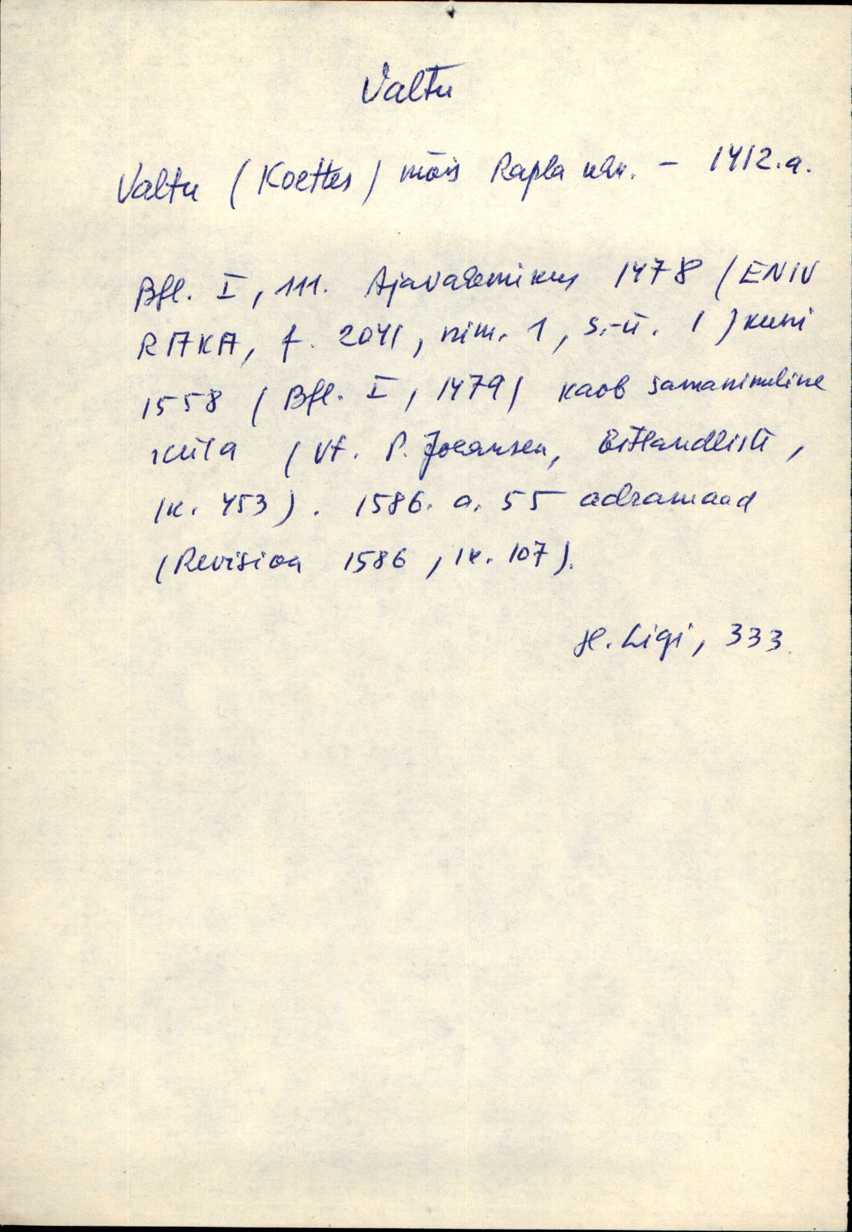 Valtu
Valtu (Koettes) mõis Rapla khk. – 1412.a.
Bfl. I, 111. Ajavahemikus 1478 (ENSV
RAKA, f. 2041, nim. 1, s.-ü. 1) kuni
1558 (Bfl. I, 1479) kaob samanimeline
küla (vt. P. Johansen, Estlandliste,
lk. 453). 1586. a. 55 adramaad
(Revision 1586, lk. 107).
H. Ligi, 333.